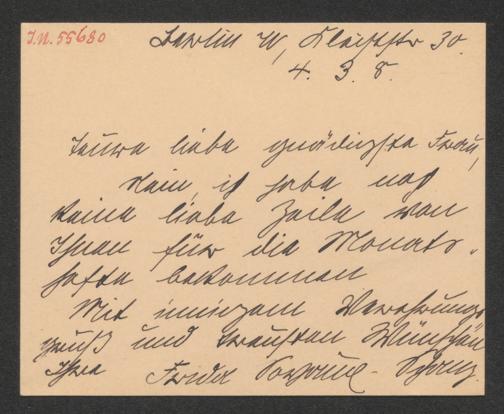 I.N. 55680
Berlin W, Kleiststr 30.
4. 3. 8.
Teure liebe gnädigste Frau,
Nein, ich habe noch
keine liebe Zeile von
Ihnen für die Monats-
hefte bekommen
Mit innigem Verehrungs-
gruß und treusten Wünschen
Ihre Frida Schanz